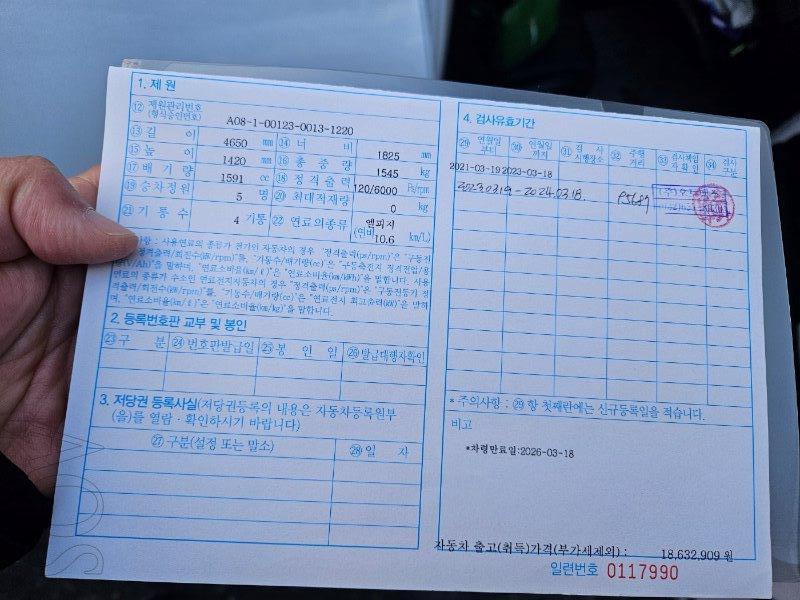 1. 제 원
⑫ 제원관리번호
(형식승인번호)
A08-1-00123-0013-1220
⑬ 길 이 4650 mm ⑭ 너 비 1825 mm
⑮ 높 이 1420 mm ⑯ 총 중 량 1545 kg
⑰ 배 기 량 1591 cc ⑱ 정 격 출 력 120/6000 Ps/rpm
⑲ 승차정원 5 명 ⑳ 최대적재량 0 kg
㉑ 기 통 수 4 기통 ㉒ 연료의종류 엘피지
(연비 10.6 km/L)
사항 : 사용연료의 종류가 전기인 자동차의 경우 "정격출력(ps/rpm)"은 "구동
정격출력/회전수(kW/rpm)"를, "기통수/배기량(cc)"은 "구동축전지 정격전압/용
(V/Ah)"을 말하며, "연료소비율(km/ℓ)"은 "연료소비율(km/kWh)"을 말합니다. 사용
연료의 종류가 수소인 연료전지자동차의 경우 "정격출력(ps/rpm)"은 "구동전동기 정
격출력/회전수(kW/rpm)"를, "기통수/배기량(cc)"은 "연료전지 최고출력(kW)"을 말하
며, "연료소비율(km/ℓ)"은 "연료소비율(km/kg)"을 말합니다.
2. 등록번호판 교부 및 봉인
㉓ 구 분 ㉔ 번호판발급일 ㉕ 봉 인 일 ㉖ 발급대행자확인
3. 저당권 등록사실(저당권등록의 내용은 자동차등록원부
(을)를 열람ㆍ확인하시기 바랍니다)
㉗ 구분(설정 또는 말소) ㉘ 일 자
4. 검사유효기간
㉙ 연월일
부터
㉚ 연월일
까지
㉛ 검 사
시행장소
㉜ 주행
거리
㉝ 검사책임
자확인
㉞ 검사
구분
2021-03-19 2023-03-18
2023.03.19 - 2024.03.18.
* 주의사항 : ㉙ 항 첫째란에는 신규등록일을 적습니다.
비고
*차령만료일:2026-03-18
자동차 출고(취득)가격(부가세제외) : 18,632,909 원
일련번호 0117990